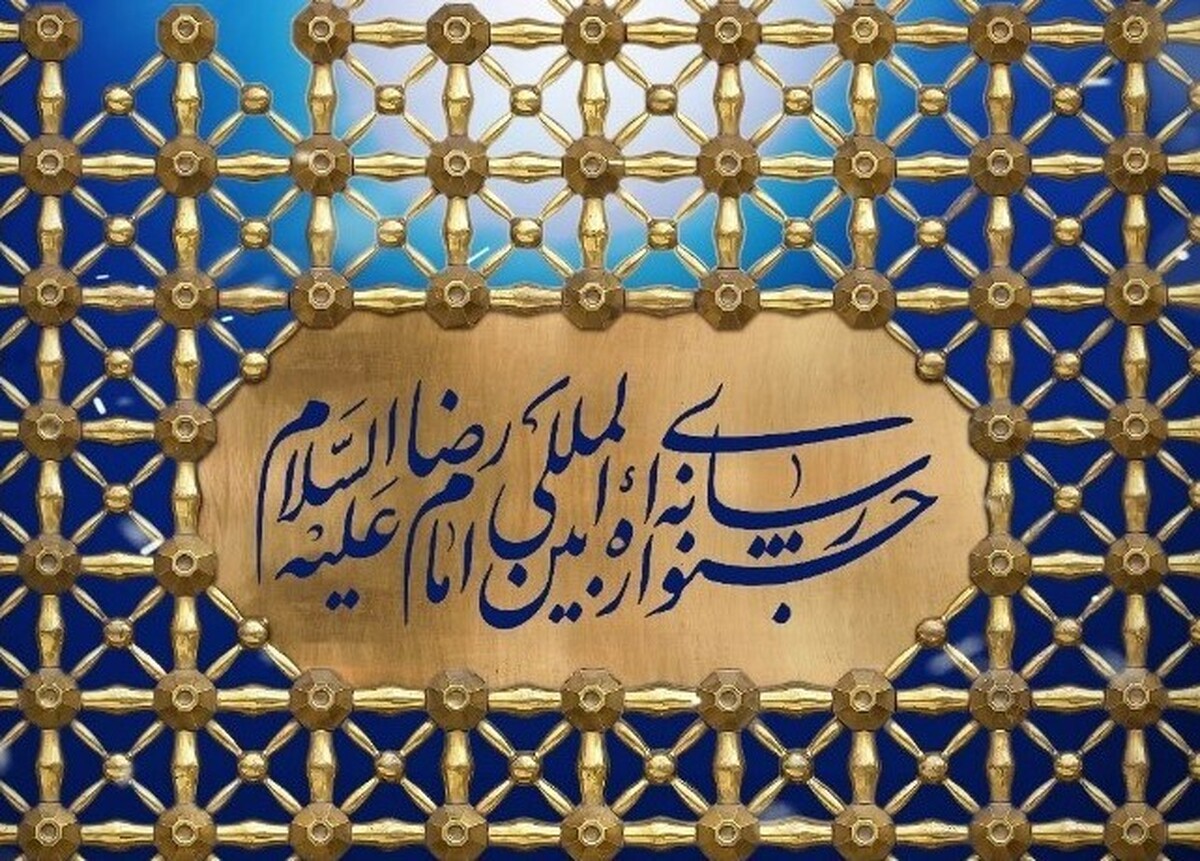 جشنواره رسانه‌ای بین‌المللی امام رضا علیه السَّلام